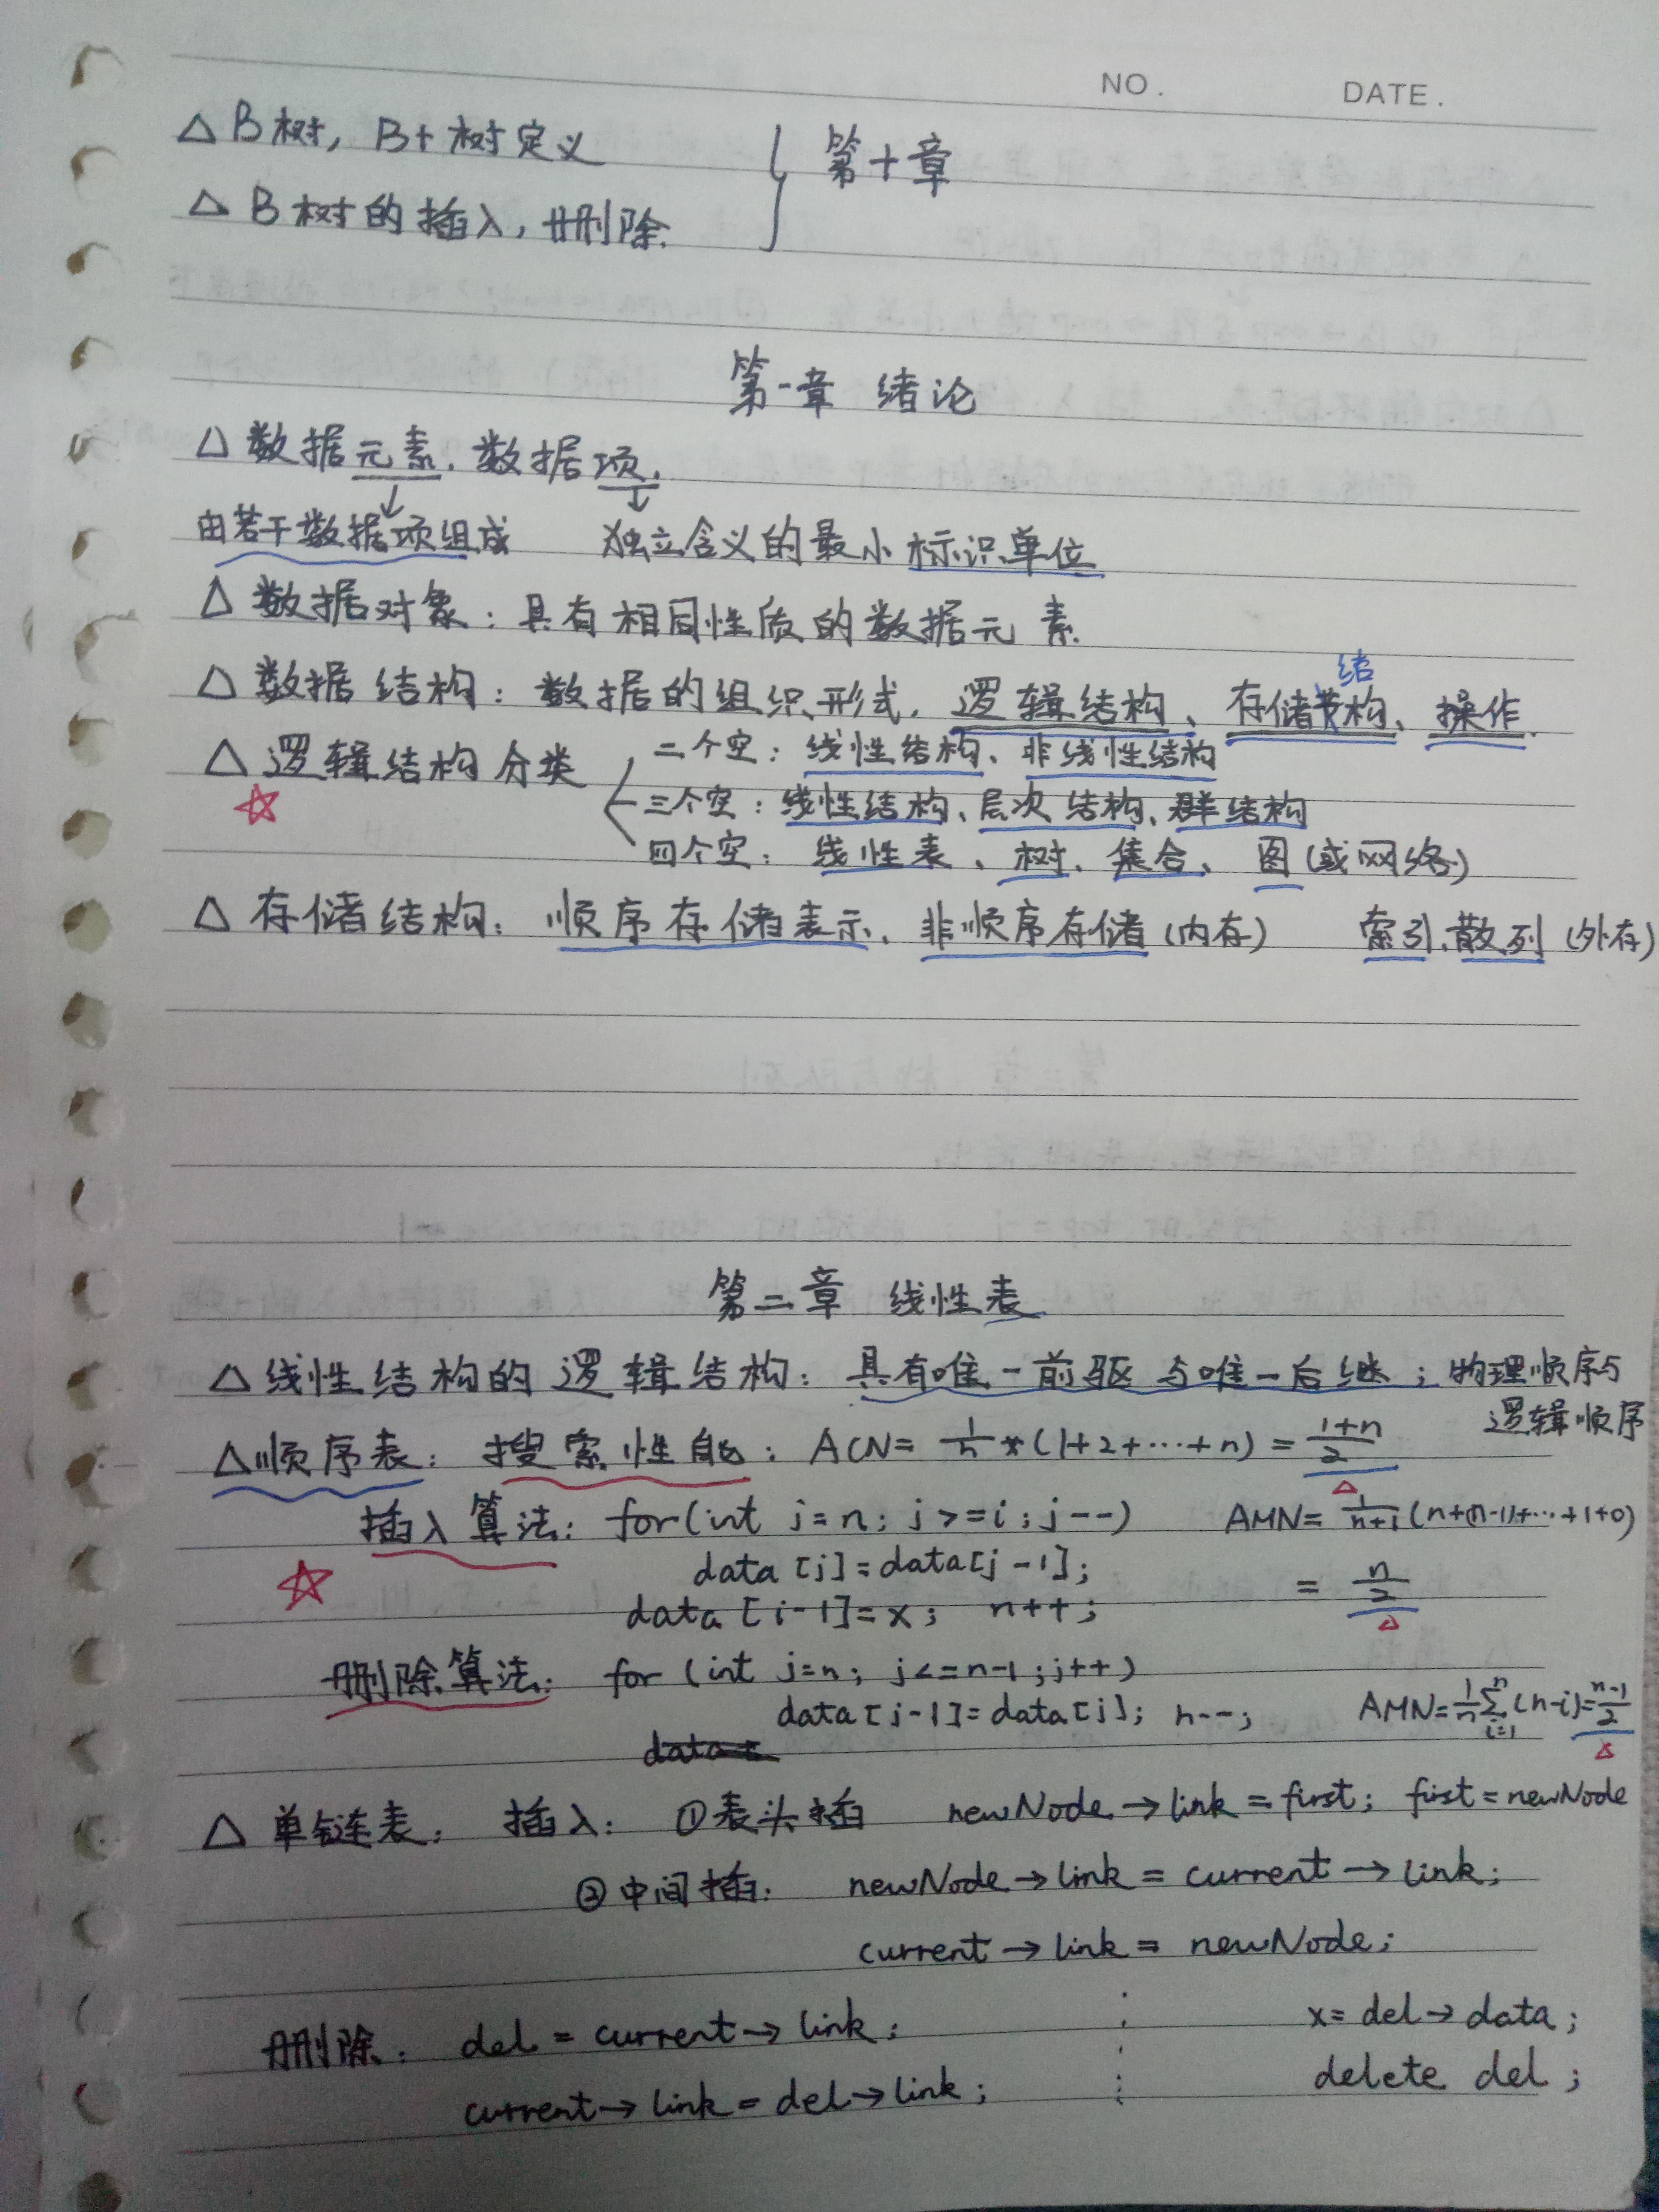 NO. DATE.
△ B树, B+树定义
△ B树的插入, 删除. } 第十章
第一章 绪论
△ 数据元素. 数据项.
由若干数据项组成 独立含义的最小标识单位
△ 数据对象: 具有相同性质的数据元素.
△ 数据结构: 数据的组织形式. 逻辑结构、存储结构、操作.
△ 逻辑结构分类 二个空: 线性结构、非线性结构
三个空: 线性结构、层次结构、群结构
四个空: 线性表、树、集合、图(或网络)
△ 存储结构: 顺序存储表示、非顺序存储(内存) 索引、散列(外存)
第二章 线性表
△ 线性结构的逻辑结构: 具有唯一前驱与唯一后继; 物理顺序与
逻辑顺序
△ 顺序表: 搜索性能: ACN= 1/n *(1+2+…+n) = (1+n)/2
插入算法: for(int j=n; j>=i; j--) AMN= 1/(n+1) (n+(n-1)+…+1+0)
data[j]=data[j-1]; = n/2
data[i-1]=x; n++;
删除算法: for (int j=n; j<=n-1; j++)
data[j-1]=data[j]; n--; AMN= 1/n ∑ i=1 n (n-i)= (n-1)/2
△ 单链表: 插入: ①表头插 newNode→link = first; first = newNode
②中间插: newNode→link = current→link;
current→link = newNode;
删除: del = current→link; x= del→data;
current→link = del→link; delete del;